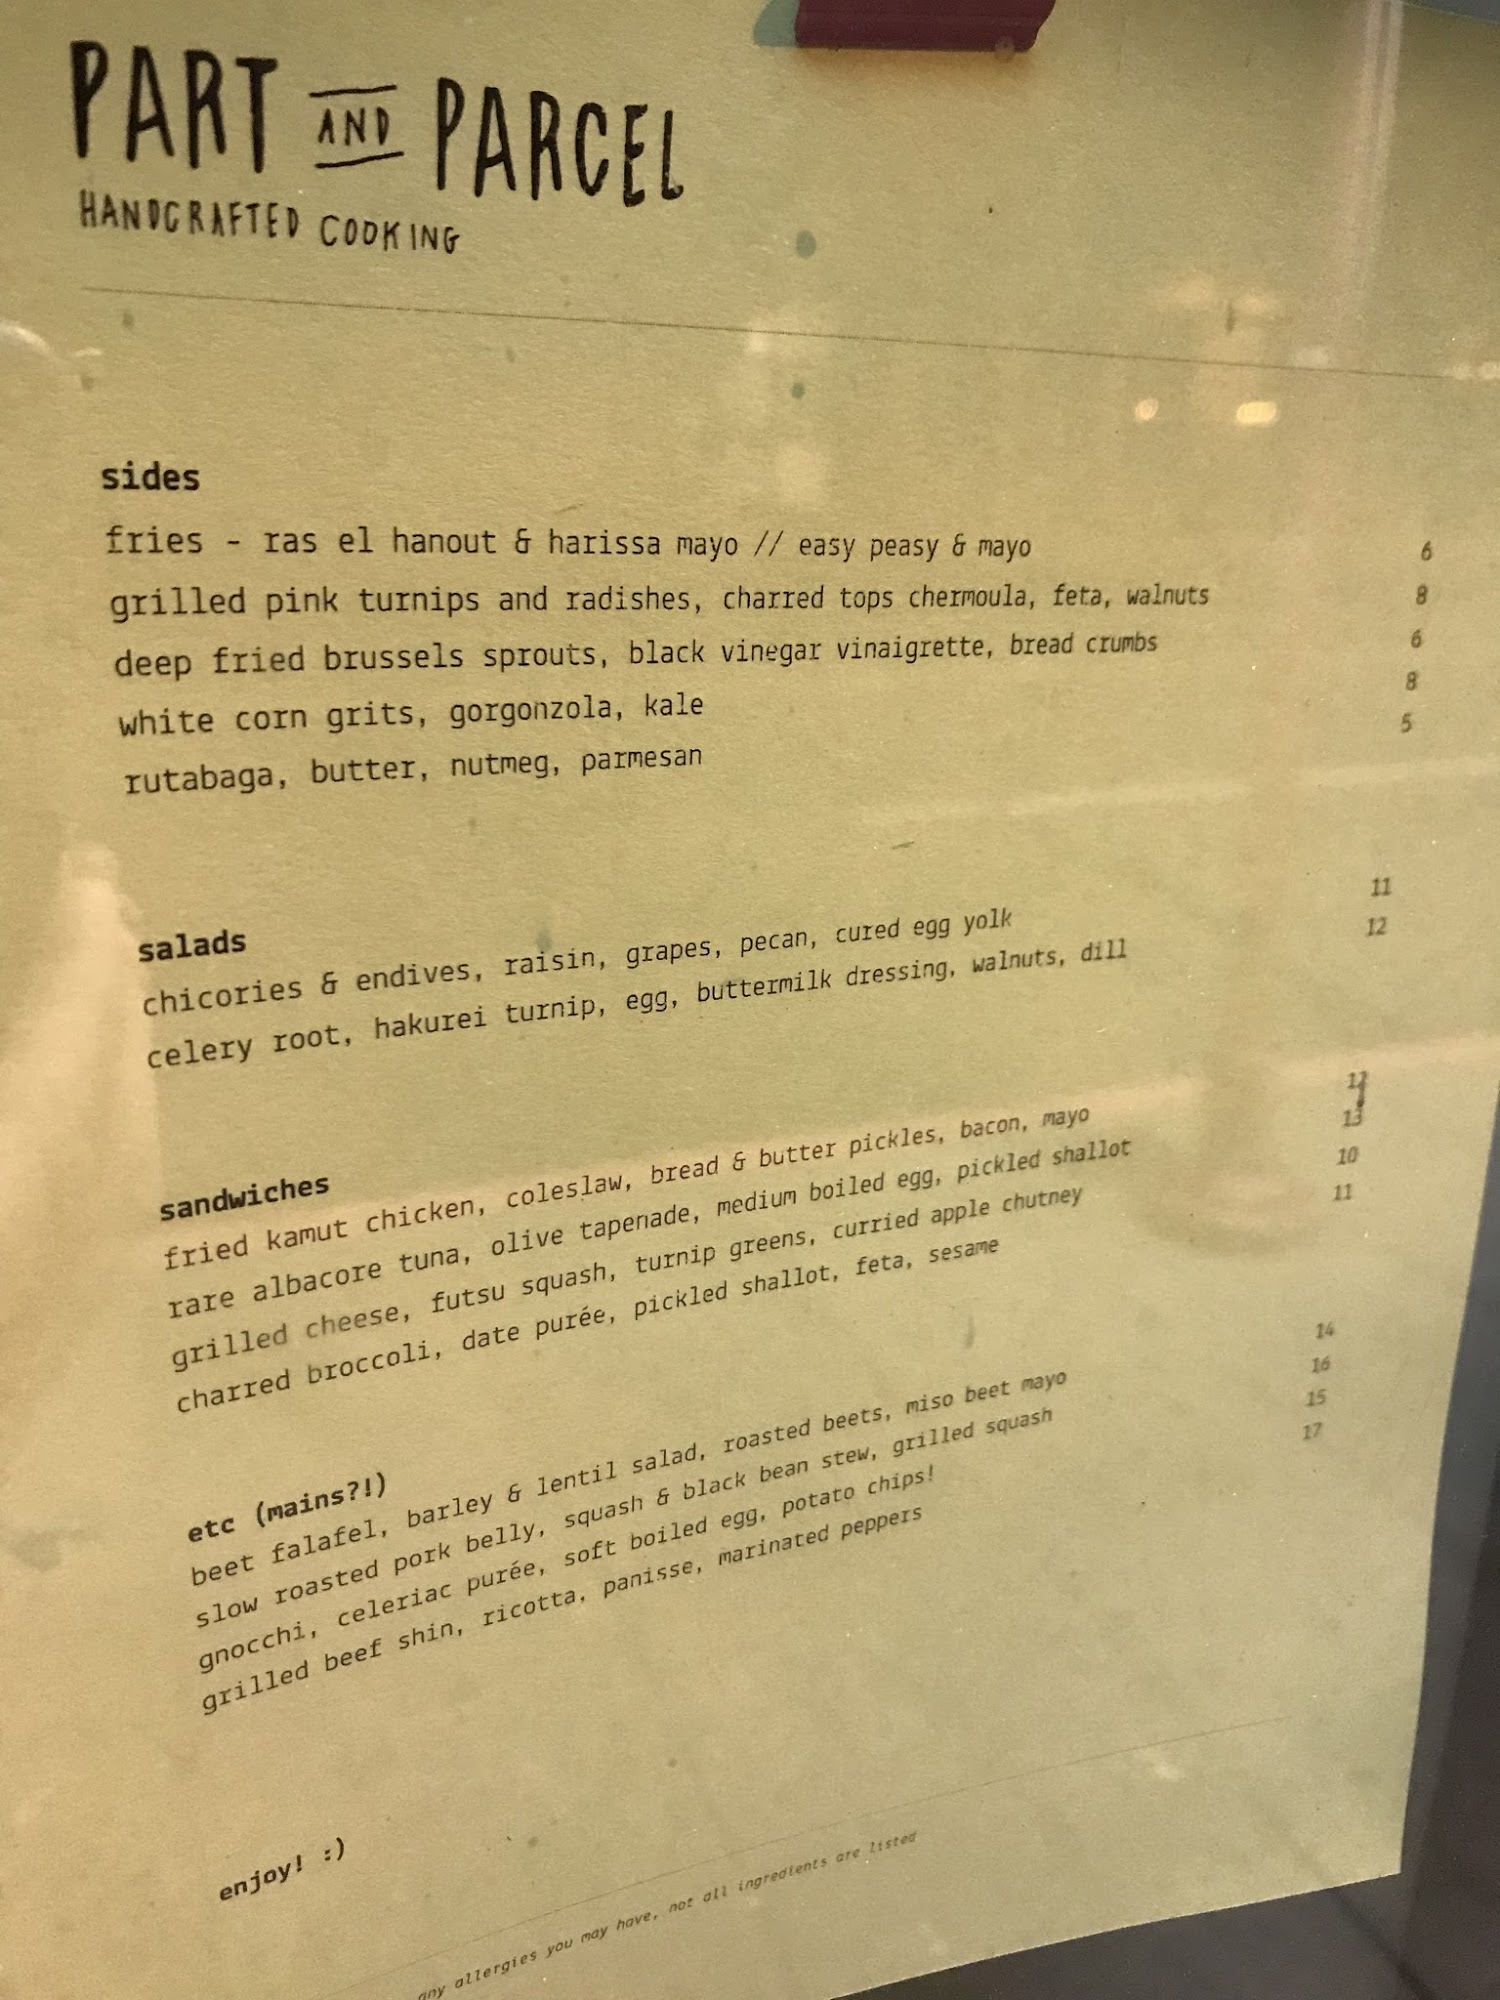 PART AND PARCEL
HANDCRAFTED COOKING
sides
fries - ras el hanout & harissa mayo // easy peasy & mayo 6
grilled pink turnips and radishes, charred tops chermoula, feta, walnuts 8
deep fried brussels sprouts, black vinegar vinaigrette, bread crumbs 6
white corn grits, gorgonzola, kale 8
rutabaga, butter, nutmeg, parmesan 5
salads
chicories & endives, raisin, grapes, pecan, cured egg yolk 11
celery root, hakurei turnip, egg, buttermilk dressing, walnuts, dill 12
sandwiches
fried kamut chicken, coleslaw, bread & butter pickles, bacon, mayo 12
rare albacore tuna, olive tapenade, medium boiled egg, pickled shallot 13
grilled cheese, futsu squash, turnip greens, curried apple chutney 10
charred broccoli, date purée, pickled shallot, feta, sesame 11
etc (mains?!)
beet falafel, barley & lentil salad, roasted beets, miso beet mayo 14
slow roasted pork belly, squash & black bean stew, grilled squash 16
gnocchi, celeriac purée, soft boiled egg, potato chips! 15
grilled beef shin, ricotta, panisse, marinated peppers 17
enjoy! :)
any allergies you may have, not all ingredients are listed